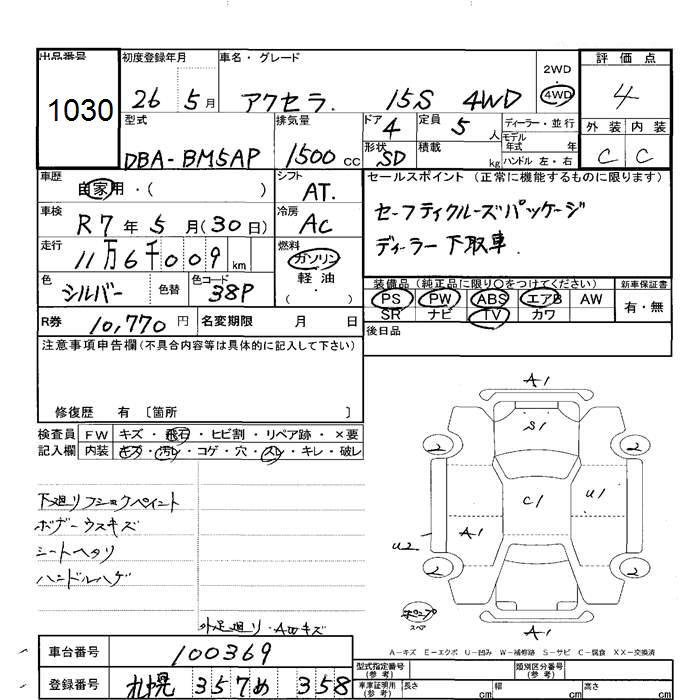 出品番号
1030
初度登録年月
26 5月
車名・グレード
アクセラ 15S 4WD
2WD
・
4WD
評価点
4
型式
DBA-BM5AP
排気量
1500cc
ドア
4
定員
5人
ディーラー・並行
モデル
年式 年
外装 内装
C C
形状
SD
積載
kg
ハンドル 左・右
車歴
自家用・( )
シフト
AT.
セールスポイント(正常に機能するものに限ります)
セーフティクルーズパッケージ
ディーラー下取車.
車検
R7年5月(30日)
冷房
AC
走行
11万6千009km
燃料
ガソリン
軽油
( ・ )
色
シルバー
色替
色コード
38P
装備品(純正品に限り○をつけてください)
新車保証書
PS PW ABS エアB AW
有・無
SR ナビ TV カワ
R券
10,770円
名変期限 月 日
後日品
注意事項申告欄(不具合内容等は具体的に記入して下さい)
修復歴 有 〔箇所 〕
検査員
記入欄
FW キズ・飛石・ヒビ割・リペア跡・×要
内装 キズ・汚レ・コゲ・穴・スレ・キレ・破レ
下廻りフショクペイント
ボデーウスキズ
シートヘタリ
ハンドルハゲ
外足廻り・AWキズ
A1
S1
2 2
C1 U1
A1
U2
2 2
A1
スペア
A-キズ E-エクボ U-凹み W-補修跡 S-サビ C-腐食 XX-交換済
車台番号
100369
登録番号
札幌 357め 358
型式指定番号
(参考)
類別区分番号
(参考)
車庫証明用
(参考)
長さ cm 幅 cm 高さ cm